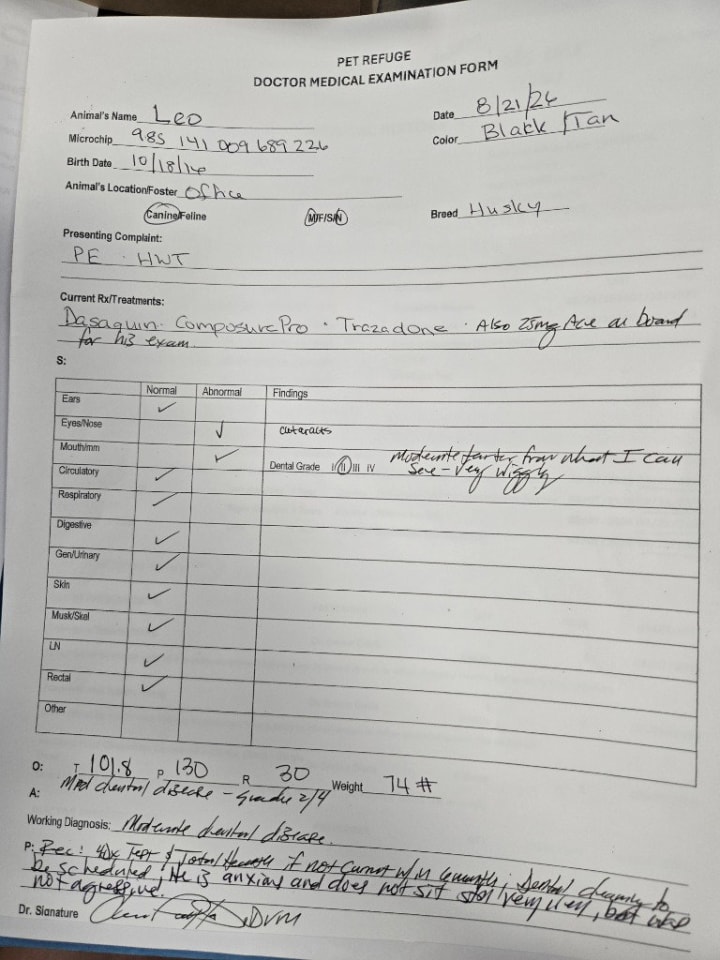 PET REFUGE
DOCTOR MEDICAL EXAMINATION FORM
Animal's Name Leo
Date 8/21/26
Microchip 985 141 009 689 226
Color Black/Tan
Birth Date 10/18/14
Animal's Location/Foster Office
Canine/Feline M/F/S/N Breed Husky
Presenting Complaint:
PE · HWT
Current Rx/Treatments:
Dasaquin · Composure Pro · Trazadone · Also 25mg Ace on board
for his exam.
S:
Normal Abnormal Findings
Ears ✓
Eyes/Nose ✓ cataracts
Mouth/mm ✓ Dental Grade I/II/III IV Moderate tartar from what I can
see - very wiggly
Circulatory ✓
Respiratory ✓
Digestive ✓
Gen/Urinary ✓
Skin ✓
Musk/Skel ✓
LN ✓
Rectal ✓
Other
O: T 101.8 P 130 R 30 Weight 74 #
A: Mod dental disease - grade 2/4
Working Diagnosis: Moderate dental disease.
P: Rec: 4Dx Test & Total Health if not current w/in 6 months; Dental cleaning to
be scheduled. He is anxious and does not sit still very well, but was
not agressive.
Dr. Signature DVM